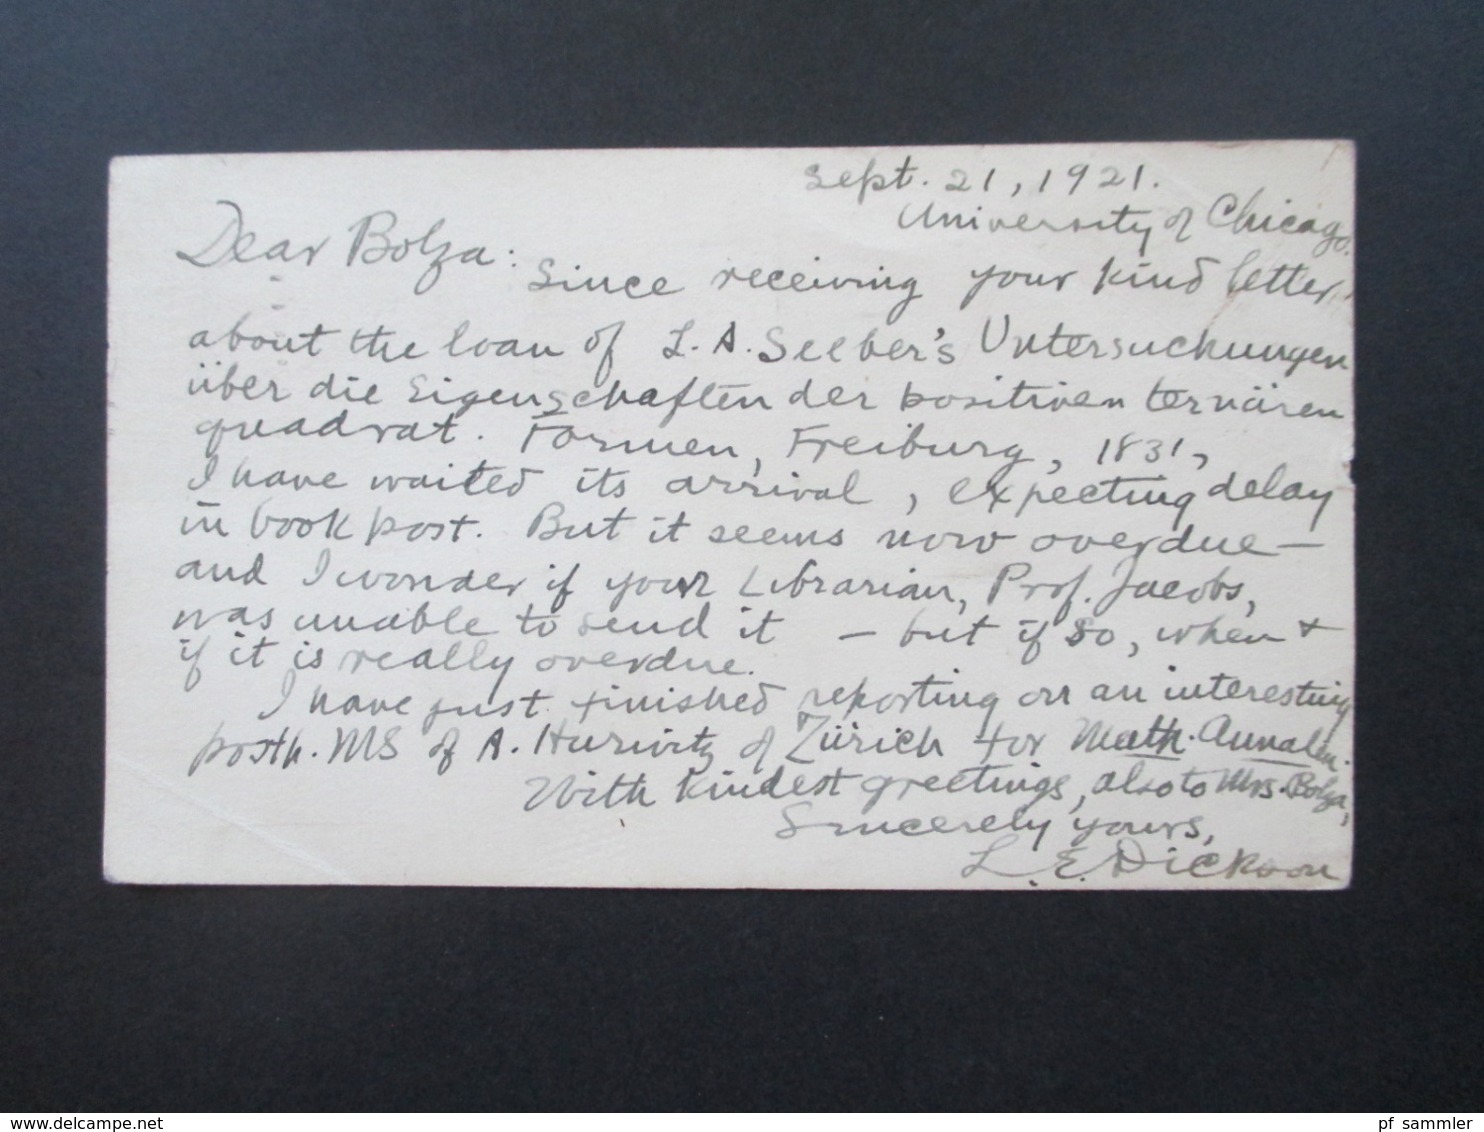 Sept. 21, 1921.
University of Chicago.
Dear Bolza:
Since receiving your kind letter
about the loan of L. A. Seeber's Untersuchungen
über die Eigenschaften der positiven ternären
quadrat. Formen, Freiburg, 1831,
I have waited its arrival, expecting delay
in book post. But it seems now overdue —
and I wonder if your Librarian, Prof. Jacobs,
was unable to send it — but if so, when +
if it is really overdue.
I have just finished reporting on an interesting
posth. MS of A. Hurwitz of Zürich for Math. Annalen.
With kindest greetings, also to Mrs. Bolza,
Sincerely yours,
L. E. Dickson
www.delcampe.net
pf_sammler